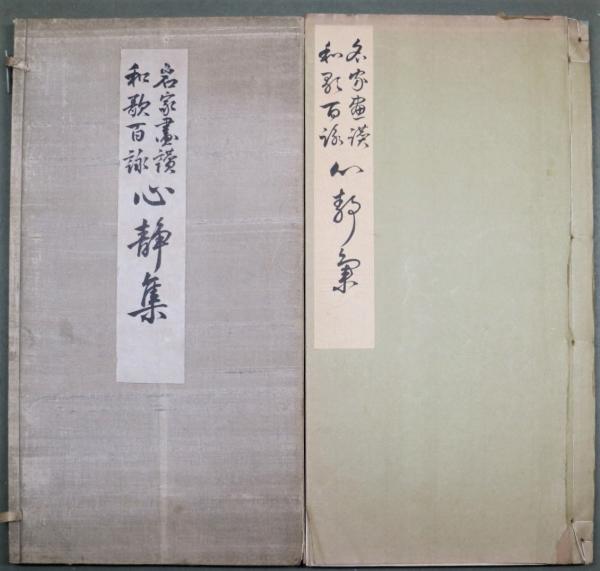 名家畫讃
和歌百詠
心静集
名家畫讃
和歌百詠
心静集